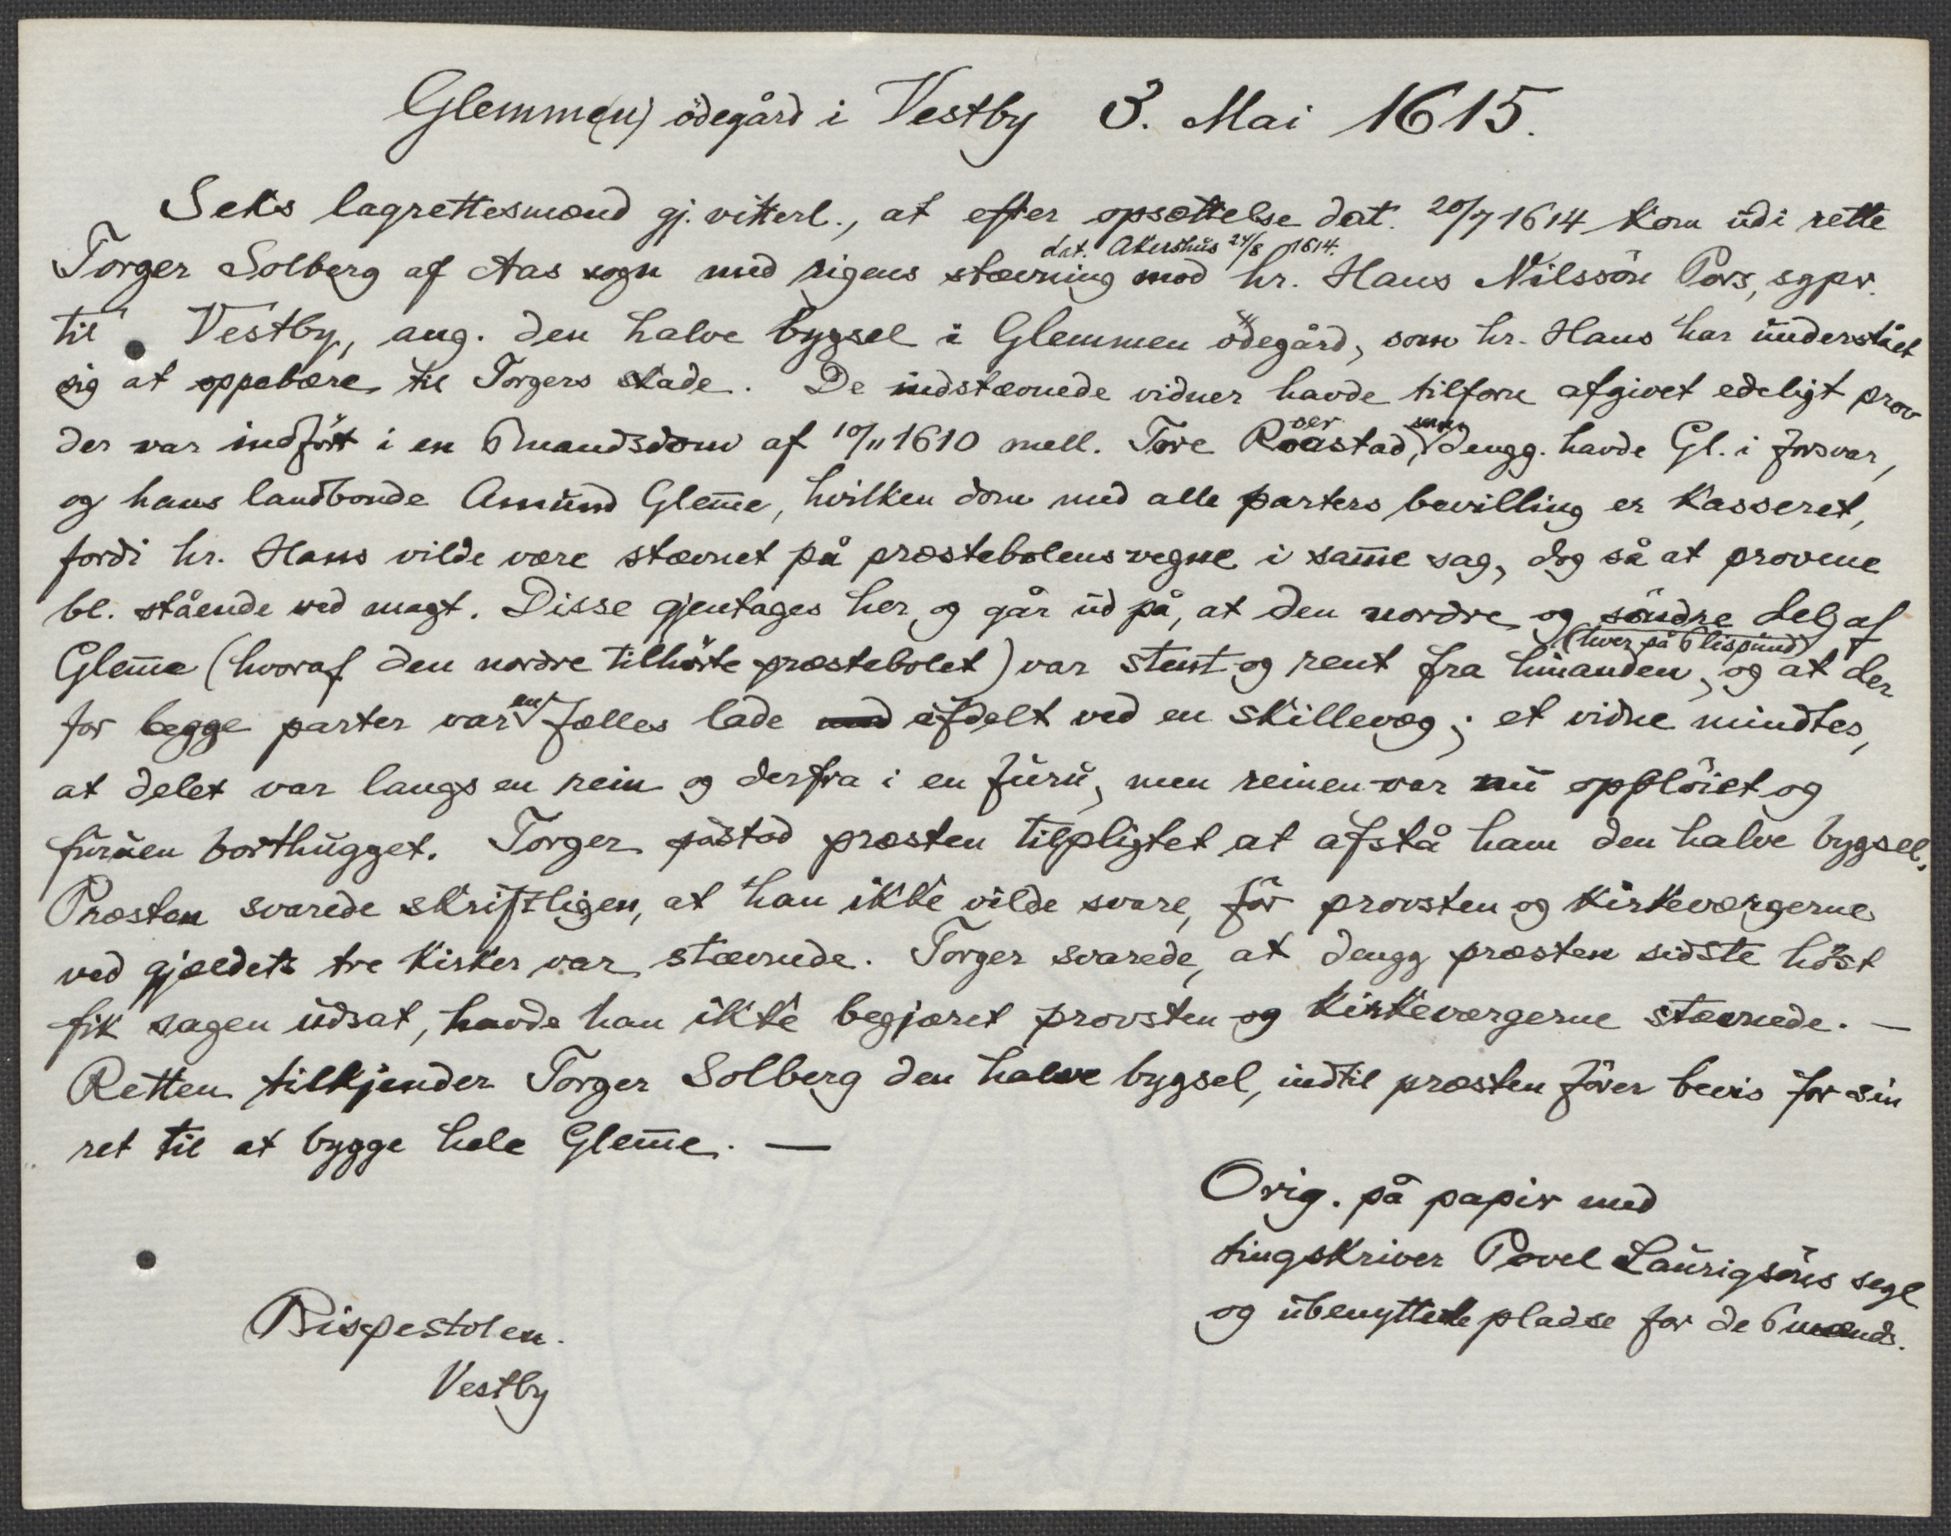 Glemme(n) ödegård i Vestby 3. Mai 1615.
Seks lagrettesmænd gj. vitterl., at efter opsættelse dat. 20/7 1614 kom udi rette
dat. Akershus 24/8 1614.
Torger Solberg af Aas sogn med rigens stævning mod hr. Hans Nilssön Pors, sgpr.
til Vestby, ang. den halve bygsel i Glemmen ödegård, som hr. Hans har understået
sig at oppebære til Torgers skade. De indstævnede vidner havde tilforn afgivet edeligt prov
der var indfört i en 6mandsdom af 10/11 1610 mell. Tore Roastad, som dengg. havde Gl. i forsvar,
og hans landbonde Amund Glem̅e, hvilken dom med alle parters bevilling er kasseret,
fordi hr. Hans vilde være stævnet på præstebolens vegne i sam̅e sag, dog så at provene
bl. stående ved magt. Disse gjentages her og går ud på, at den nordre og söndre del af
(hver på 6 lispund)
Glem̅e (hvoraf den nordre tilhörte præstebolet) var stent og rent fra hinanden, og at der
for begge parter var en fælles lade afdelt ved en skillevæg; et vidne mindtes,
at delet var langs en rein og derfra i en furu, men reinen var nu opplöiet og
furuen borthugget. Torger påstod præsten tilpligtet at afstå ham den halve bygsel.
Præsten svarede skriftligen, at han ikke vilde svare, för provsten og kirkeværgerne
ved gjældets tre kirker var stævnede. Torger svarede, at dengg præsten sidste höst
fik sagen udsat, havde han ikke begjæret provsten og kirkeværgerne stævnede. —
Retten tilkjender Torger Solberg den halve bygsel, indtil præsten förer bevis for sin
ret til at bygge hele Glem̅e. —
Orig. på papir med
tingskriver Povel Laurigsöns segl
og ubenyttede pladse for de 6 mænds.
Bispestolen.
Vestby